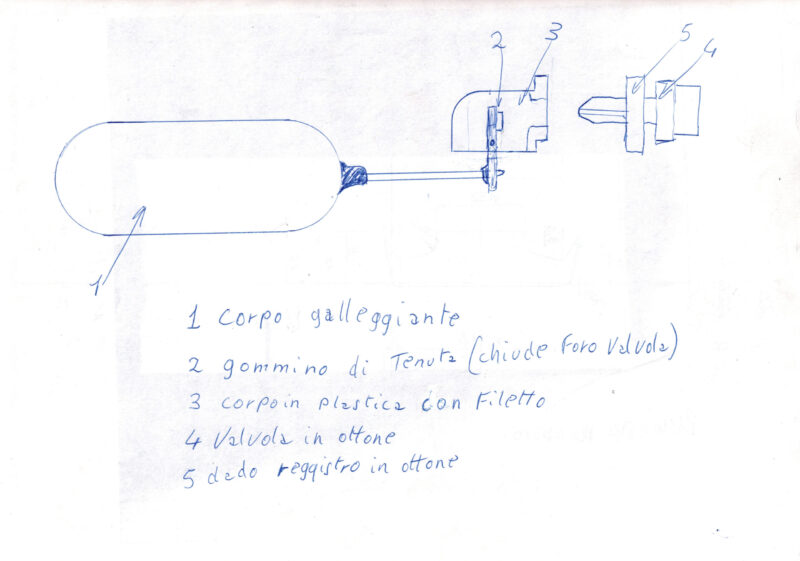 2
3
5
4
1
1 corpo galleggiante
2 gommino di Tenuta (chiude Foro Valvola)
3 corpo in plastica con Filetto
4 Valvola in ottone
5 dado reggistro in ottone